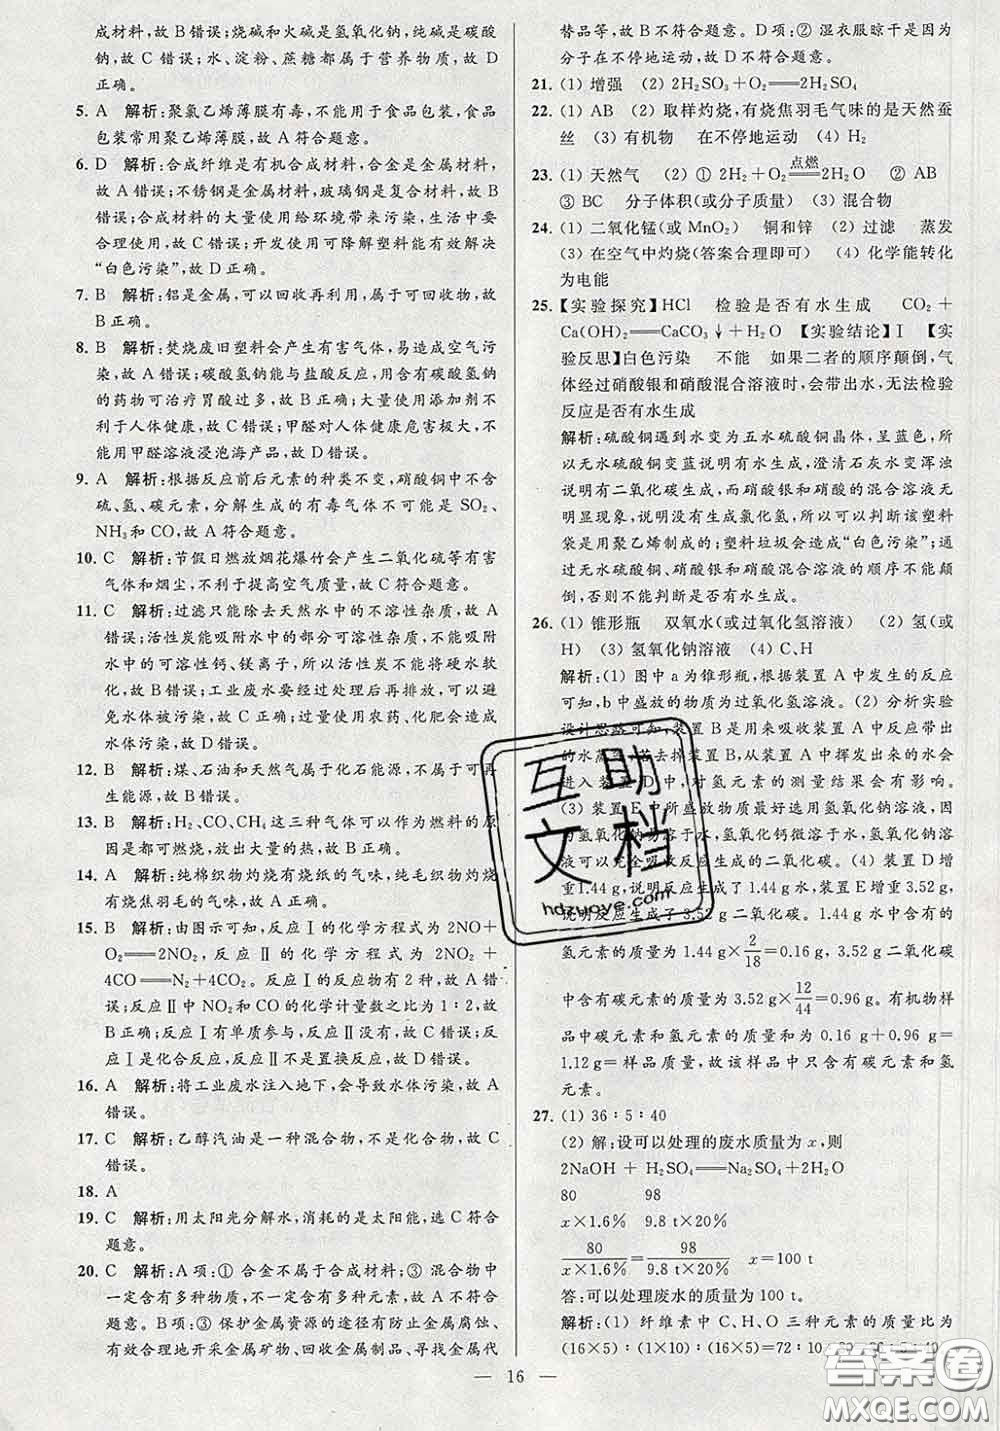 成材料,故B错误;烧碱和火碱是氢氧化钠,纯碱是碳酸
钠,故C错误;水、淀粉、蔗糖都属于营养物质,故D
正确。
5. A 解析:聚氯乙烯薄膜有毒,不能用于食品包装,食品
包装常用聚乙烯薄膜,故A符合题意。
6. D 解析:合成纤维是有机合成材料,合金是金属材料,
故A错误;不锈钢是金属材料,玻璃钢是复合材料,故B
错误;合成材料的大量使用给环境带来污染,生活中要
合理使用,故C错误;开发使用可降解塑料能有效解决
“白色污染”,故D正确。
7. B 解析:铝是金属,可以回收再利用,属于可回收物,故
B正确。
8. B 解析:焚烧废旧塑料会产生有害气体,易造成空气污
染,故A错误;碳酸氢钠能与盐酸反应,用含有碳酸氢钠
的药物可治疗胃酸过多,故B正确;大量使用添加剂不
利于人体健康,故C错误;甲醛对人体健康危害极大,不
能用甲醛溶液浸泡海产品,故D错误。
9. A 解析:根据反应前后元素的种类不变,硝酸铜中不含
硫、氢、碳元素,分解生成的有毒气体不可能是SO₂、
NH₃和CO,故A符合题意。
10. C 解析:节假日燃放烟花爆竹会产生二氧化硫等有害
气体和烟尘,不利于提高空气质量,故C符合题意。
11. C 解析:过滤只能除去天然水中的不溶性杂质,故A
错误;活性炭能吸附水中的部分可溶性杂质,不能吸附
水中的可溶性钙、镁离子,所以不能将硬水软
化,故B错误;工业废水要经过处理后再排放,可以避
免水体被污染,故C正确;过量使用农药、化肥会造成
水体污染,故D错误。
12. B 解析:煤、石油和天然气属于化石能源,不属于可再
生能源,故B错误。
13. B 解析:H₂、CO、CH₄这三种气体可以作为燃料的原
因是都可燃烧,放出大量的热,故B正确。
14. A 解析:纯棉织物灼烧有烧纸的气味,纯毛织物灼烧
有烧焦羽毛的气味,故A正确。
15. B 解析:由图示可知,反应Ⅰ的化学方程式为2NO+
O₂══2NO₂,反应Ⅱ的化学方程式为2NO₂+
4CO══N₂+4CO₂。反应Ⅰ的反应物有2种,故A错
误;反应Ⅱ中NO₂和CO的化学计量数之比为1∶2,故
B正确;反应Ⅰ有单质参与,反应Ⅱ没有,故C错误;反
应Ⅰ是化合反应,反应Ⅱ不是置换反应,故D错误。
16. A 解析:将工业废水注入地下,会导致水体污染,故A
错误。
17. C 解析:乙醇汽油是一种混合物,不是化合物,故C
错误。
18. A
19. C 解析:用太阳光分解水,消耗的是太阳能,选C符合
题意。
20. C 解析:A项:① 合金不属于合成材料;③ 混合物中
一定含有多种物质,不一定含有多种元素,故A不符合
题意。B项:③ 保护金属资源的途径有防止金属腐蚀、
有效合理地开采金属矿物、回收金属制品、寻找金属代
替品等,故B不符合题意。D项:② 湿衣服晾干是因为
分子在不停地运动,故D不符合题意。
21. (1) 增强 (2) 2H₂SO₃+O₂══2H₂SO₄
22. (1) AB (2) 取样灼烧,有烧焦羽毛气味的是天然蚕
丝 (3) 有机物 在不停地运动 (4) H₂
23. (1) 天然气 (2) ① 2H₂+O₂══点燃══2H₂O ② AB
③ BC 分子体积(或分子质量) (3) 混合物
24. (1) 二氧化锰(或MnO₂) 铜和锌 (2) 过滤 蒸发
(3) 在空气中灼烧(答案合理即可) (4) 化学能转化
为电能
25. 【实验探究】HCl 检验是否有水生成 CO₂+
Ca(OH)₂══CaCO₃↓+H₂O 【实验结论】Ⅰ 【实
验反思】白色污染 不能 如果二者的顺序颠倒,气
体经过硝酸银和硝酸混合溶液时,会带出水,无法检验
反应是否有水生成
解析:硫酸铜遇到水变为五水硫酸铜晶体,呈蓝色,所
以无水硫酸铜变蓝说明有水生成,澄清石灰水变浑浊
说明有二氧化碳生成,而硝酸银和硝酸的混合溶液无
明显现象,说明没有生成氯化氢,所以可以判断该塑料
袋是用聚乙烯制成的;塑料垃圾会造成“白色污染”;通
过无水硫酸铜、硝酸银和硝酸混合溶液的顺序不能颠
倒,否则不能判断是否有水生成。
26. (1) 锥形瓶 双氧水(或过氧化氢溶液) (2) 氢(或
H) (3) 氢氧化钠溶液 (4) C、H
解析:(1) 图中a为锥形瓶,根据装置A中发生的反应
可知,b中盛放的物质为过氧化氢溶液。(2) 分析实验
设计思路可知,装置B是用来吸收装置A中反应带出
的水蒸气,若去掉装置B,从装置A中挥发出来的水会
进入装置D中,对氢元素的测量结果会有影响。
(3) 装置E中所盛放物质最好选用氢氧化钠溶液,因
为氢氧化钠易溶于水,氢氧化钙微溶于水,氢氧化钠溶
液可以完全吸收反应生成的二氧化碳。(4) 装置D增
重1.44 g,说明反应生成了1.44 g水,装置E增重3.52 g,
说明反应生成了3.52 g二氧化碳。1.44 g水中含有的
氢元素的质量为1.44 g×2/18=0.16 g,3.52 g二氧化碳
中含有碳元素的质量为3.52 g×12/44=0.96 g。有机物样
品中碳元素和氢元素的质量和为0.16 g+0.96 g=
1.12 g=样品质量,故该样品中只含有碳元素和氢
元素。
27. (1) 36∶5∶40
(2) 解:设可以处理的废水质量为x,则
2NaOH + H₂SO₄══Na₂SO₄+2H₂O
80 98
x×1.6% 9.8 t×20%
80/(x×1.6%)=98/(9.8 t×20%) x=100 t
答:可以处理废水的质量为100 t。
解析:(1) 纤维素中C、H、O三种元素的质量比为
(16×5)∶(1×10)∶(16×5)=72∶10
— 16 —
互助文档
hdzuoye.com
答案圈
MXQE.COM